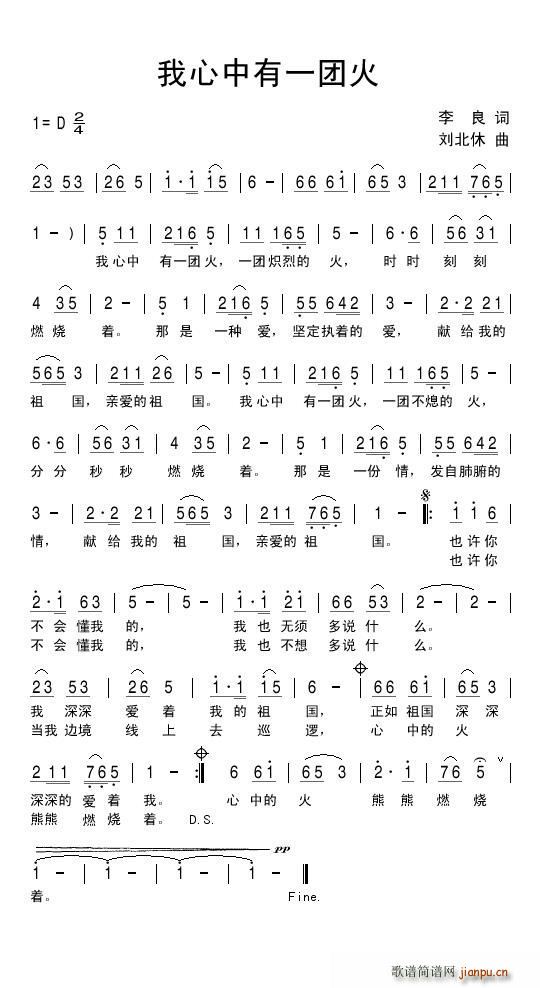 我心中有一团火
1=D 2/4
李 良 词
刘北休 曲
23 53 | 26 5 | 1·1 15 | 6 - | 66 61 | 65 3 | 211 765 |
1 - ) | 5 11 | 216 5 | 11 165 | 5 - | 6·6 | 56 31 |
我心中 有一团火, 一团炽烈的 火, 时时 刻刻
4 35 | 2 - | 5 1 | 216 5 | 55 642 | 3 - | 2·2 21 |
燃烧 着。 那是 一种 爱, 坚定执着的 爱, 献给我的
565 3 | 211 26 | 5 - | 5 11 | 216 5 | 11 165 | 5 - |
祖 国, 亲爱的祖 国。 我心中 有一团火, 一团不熄的 火,
6·6 | 56 31 | 4 35 | 2 - | 5 1 | 216 5 | 55 642 |
分分 秒秒 燃烧 着。 那是 一份 情, 发自肺腑的
3 - | 2·2 21 | 565 3 | 211 765 | 1 - |: 1 1 6 |
情, 献给我的 祖 国, 亲爱的 祖 国。 也许你
也许你
2·1 63 | 5 - | 5 - | 1·1 21 | 66 53 | 2 - | 2 - |
不会懂我 的, 我也无须 多说什 么。
不会懂我 的, 我也不想 多说什 么。
23 53 | 26 5 | 1·1 15 | 6 - | 66 61 | 65 3 |
我 深深 爱着 我的祖 国, 正如 祖国 深深
当我边境 线上 去 巡 逻, 心 中的 火
211 765 | 1 - :| 6 61 | 65 3 | 2·1 | 76 5 ∨
深深的 爱着 我。 心中的 火 熊熊 燃烧
熊熊 燃烧 着。 D.S.
pp
1 - | 1 - | 1 - | 1 - ||
着。 Fine.
歌谱简谱网 jianpu.cn